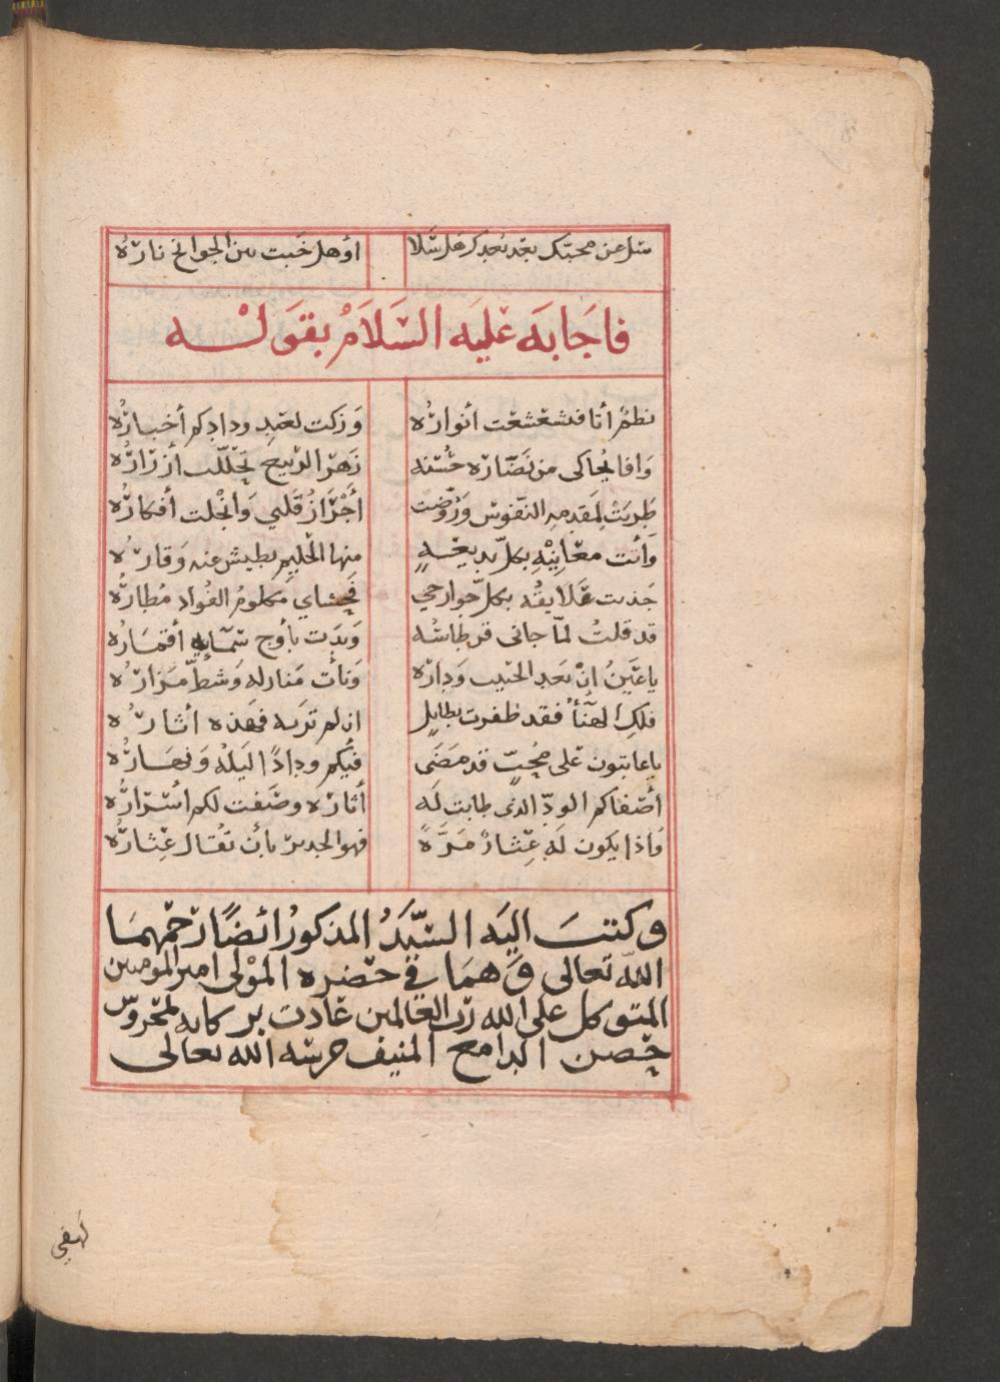 سل عن محبتك بعد بعدكم هل سلا
أو هل خبت بين الجوانح ناره
فاجابه عليه السلام بقوله
نظم أتا فتشعشعت أنواره
وزكت لعهد ودادكم أخباره
وافا يحاكي من نضاره حسنه
زهر الربيع تحللت أزراره
طربت لمقدمه النفوس وروضت
أجراز قلبي وانجلت أفكاره
وأتت معانيه بكل بديعة
منها الحليم يطيش عنه وقاره
جذبت علايقه بكل جوارحي
فحشاي مكلوم الفواد مطاره
قد قلت لما جاني قرطاسه
وبدت بأوج سمايه أقماره
يا عين ان بعد الحبيب وداره
ونأت منازله وشط مزاره
فلك الهنأ فقد ظفرت بطايل
ان لم تريه فهذه أثاره
يا عاتبون على محب قد مضى
فيكم ودادًا ليله ونهاره
أصفاكم الود الذى طابت له
أثاره وصفت لكم اسراره
واذا يكون له عثار مرة
فهو الجدير بان تقال عثاره
وكتب اليه السيد المذكور ائضًا رحمهما
الله تعالى وهما في حضره المولى امير المومنين
المتوكل على الله رب العالمين عادت بركاته لمحروس
حصن الدامغ المنيف حرسه الله تعالى